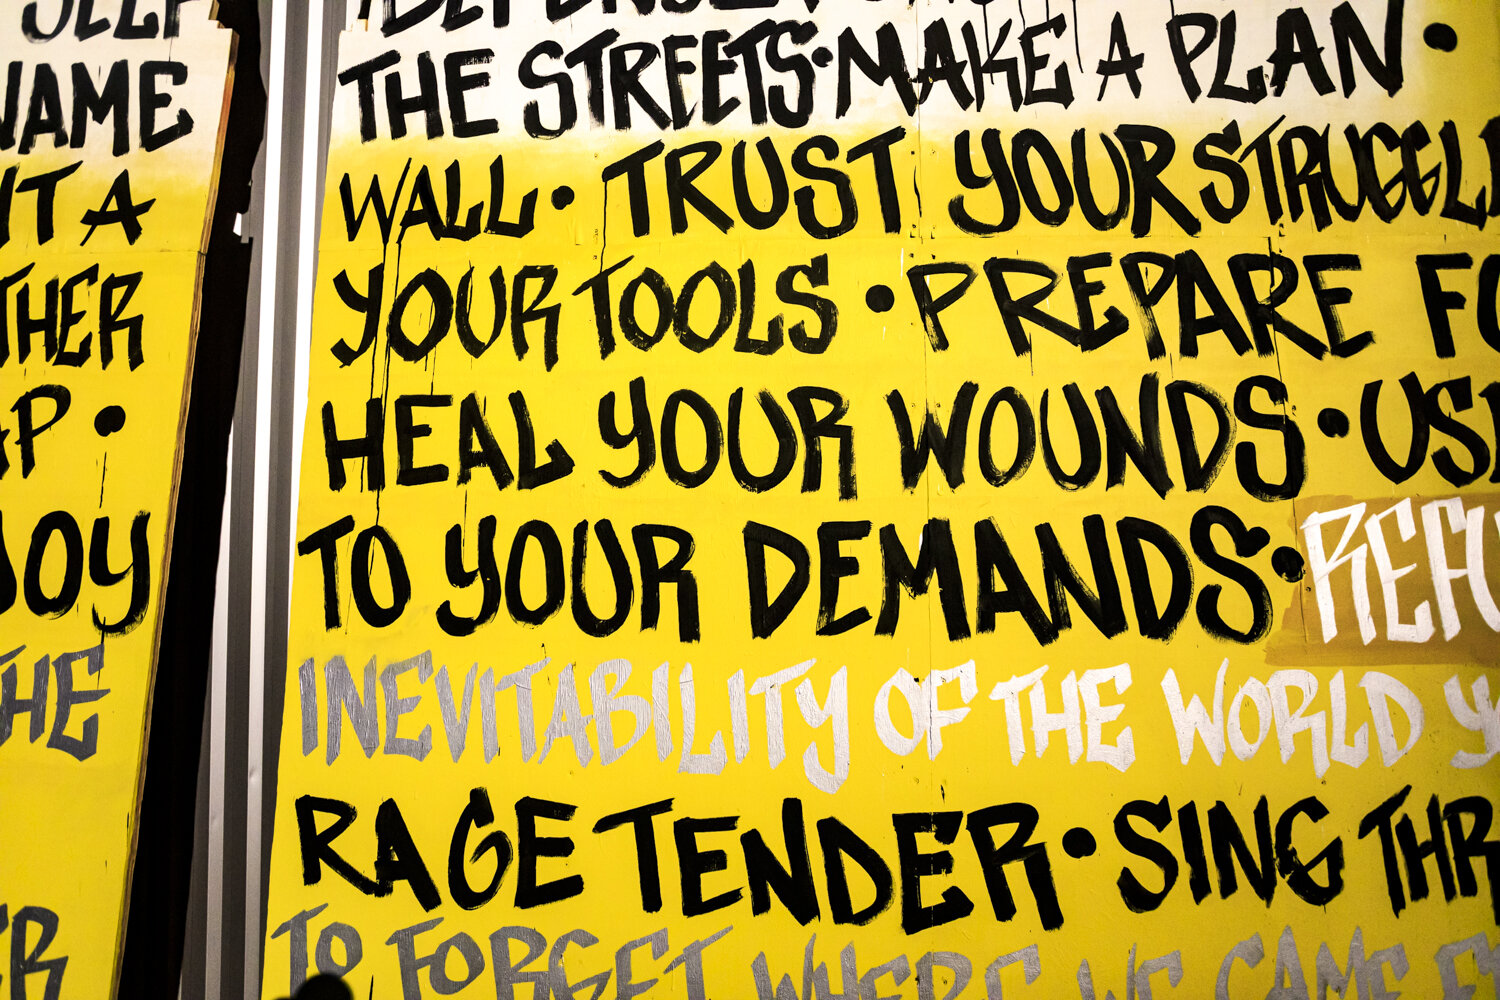 SELF
NAME
A
THER
AP •
JOY
THE
THE STREETS • MAKE A PLAN •
WALL • TRUST YOUR STRUGGL
YOUR TOOLS • PREPARE FO
HEAL YOUR WOUNDS • USE
TO YOUR DEMANDS • REFU
INEVITABILITY OF THE WORLD Y
RAGE TENDER • SING THR
TO FORGET WHERE WE CAME F